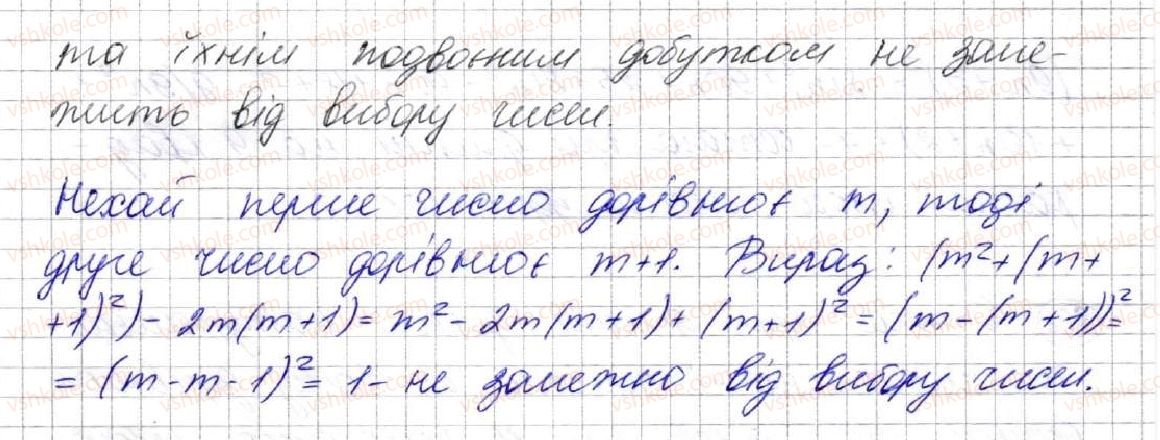 та їхнім подвоєним добутком не зале-
жить від вибору чисел.
Нехай перше число дорівнює m, тоді
друге число дорівнює m+1. Вираз: (m²+(m+
+1)²)- 2m(m+1)= m²- 2m(m+1)+ (m+1)²= (m-(m+1))²=
= (m-m-1)²= 1- не залежно від вибору чисел.